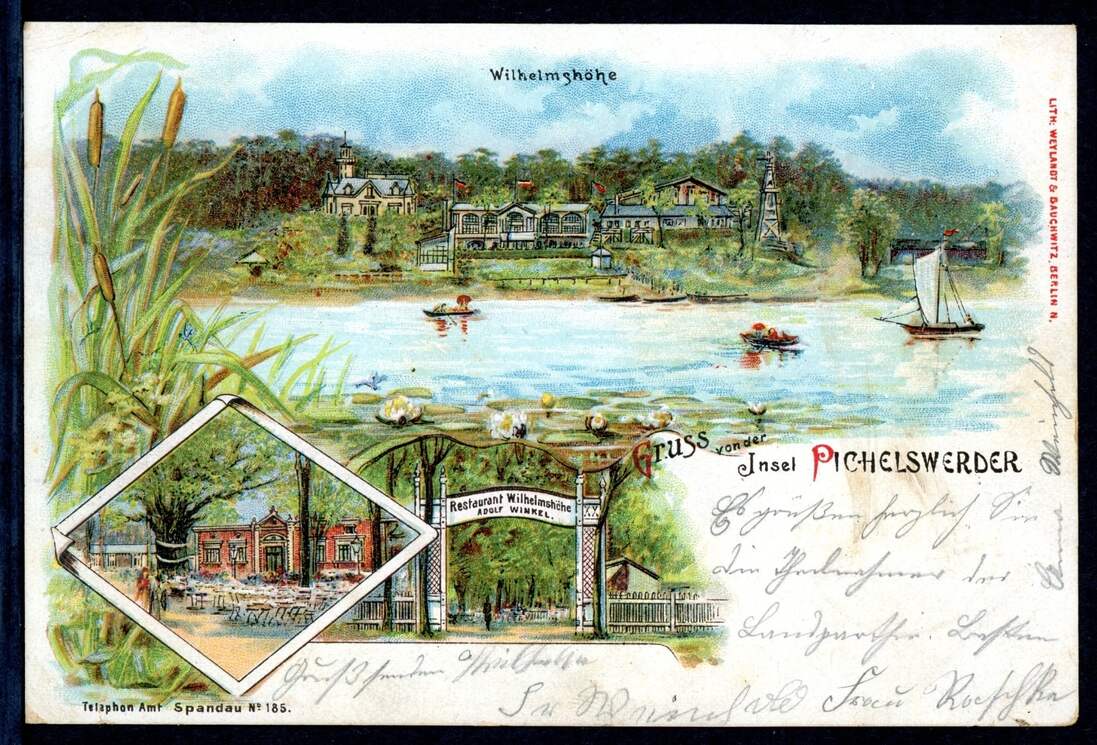 Wilhelmshöhe
LITH: WEYLANDT & BAUCHWITZ, BERLIN N.
Gruss von der
Insel PICHELSWERDER
Restaurant Wilhelmshöhe
ADOLF WINKEL.
Es grüßen herzlich Sie
die Theilnehmer der
Landparthie. Besten
Frau
Telephon Amt Spandau No 185.